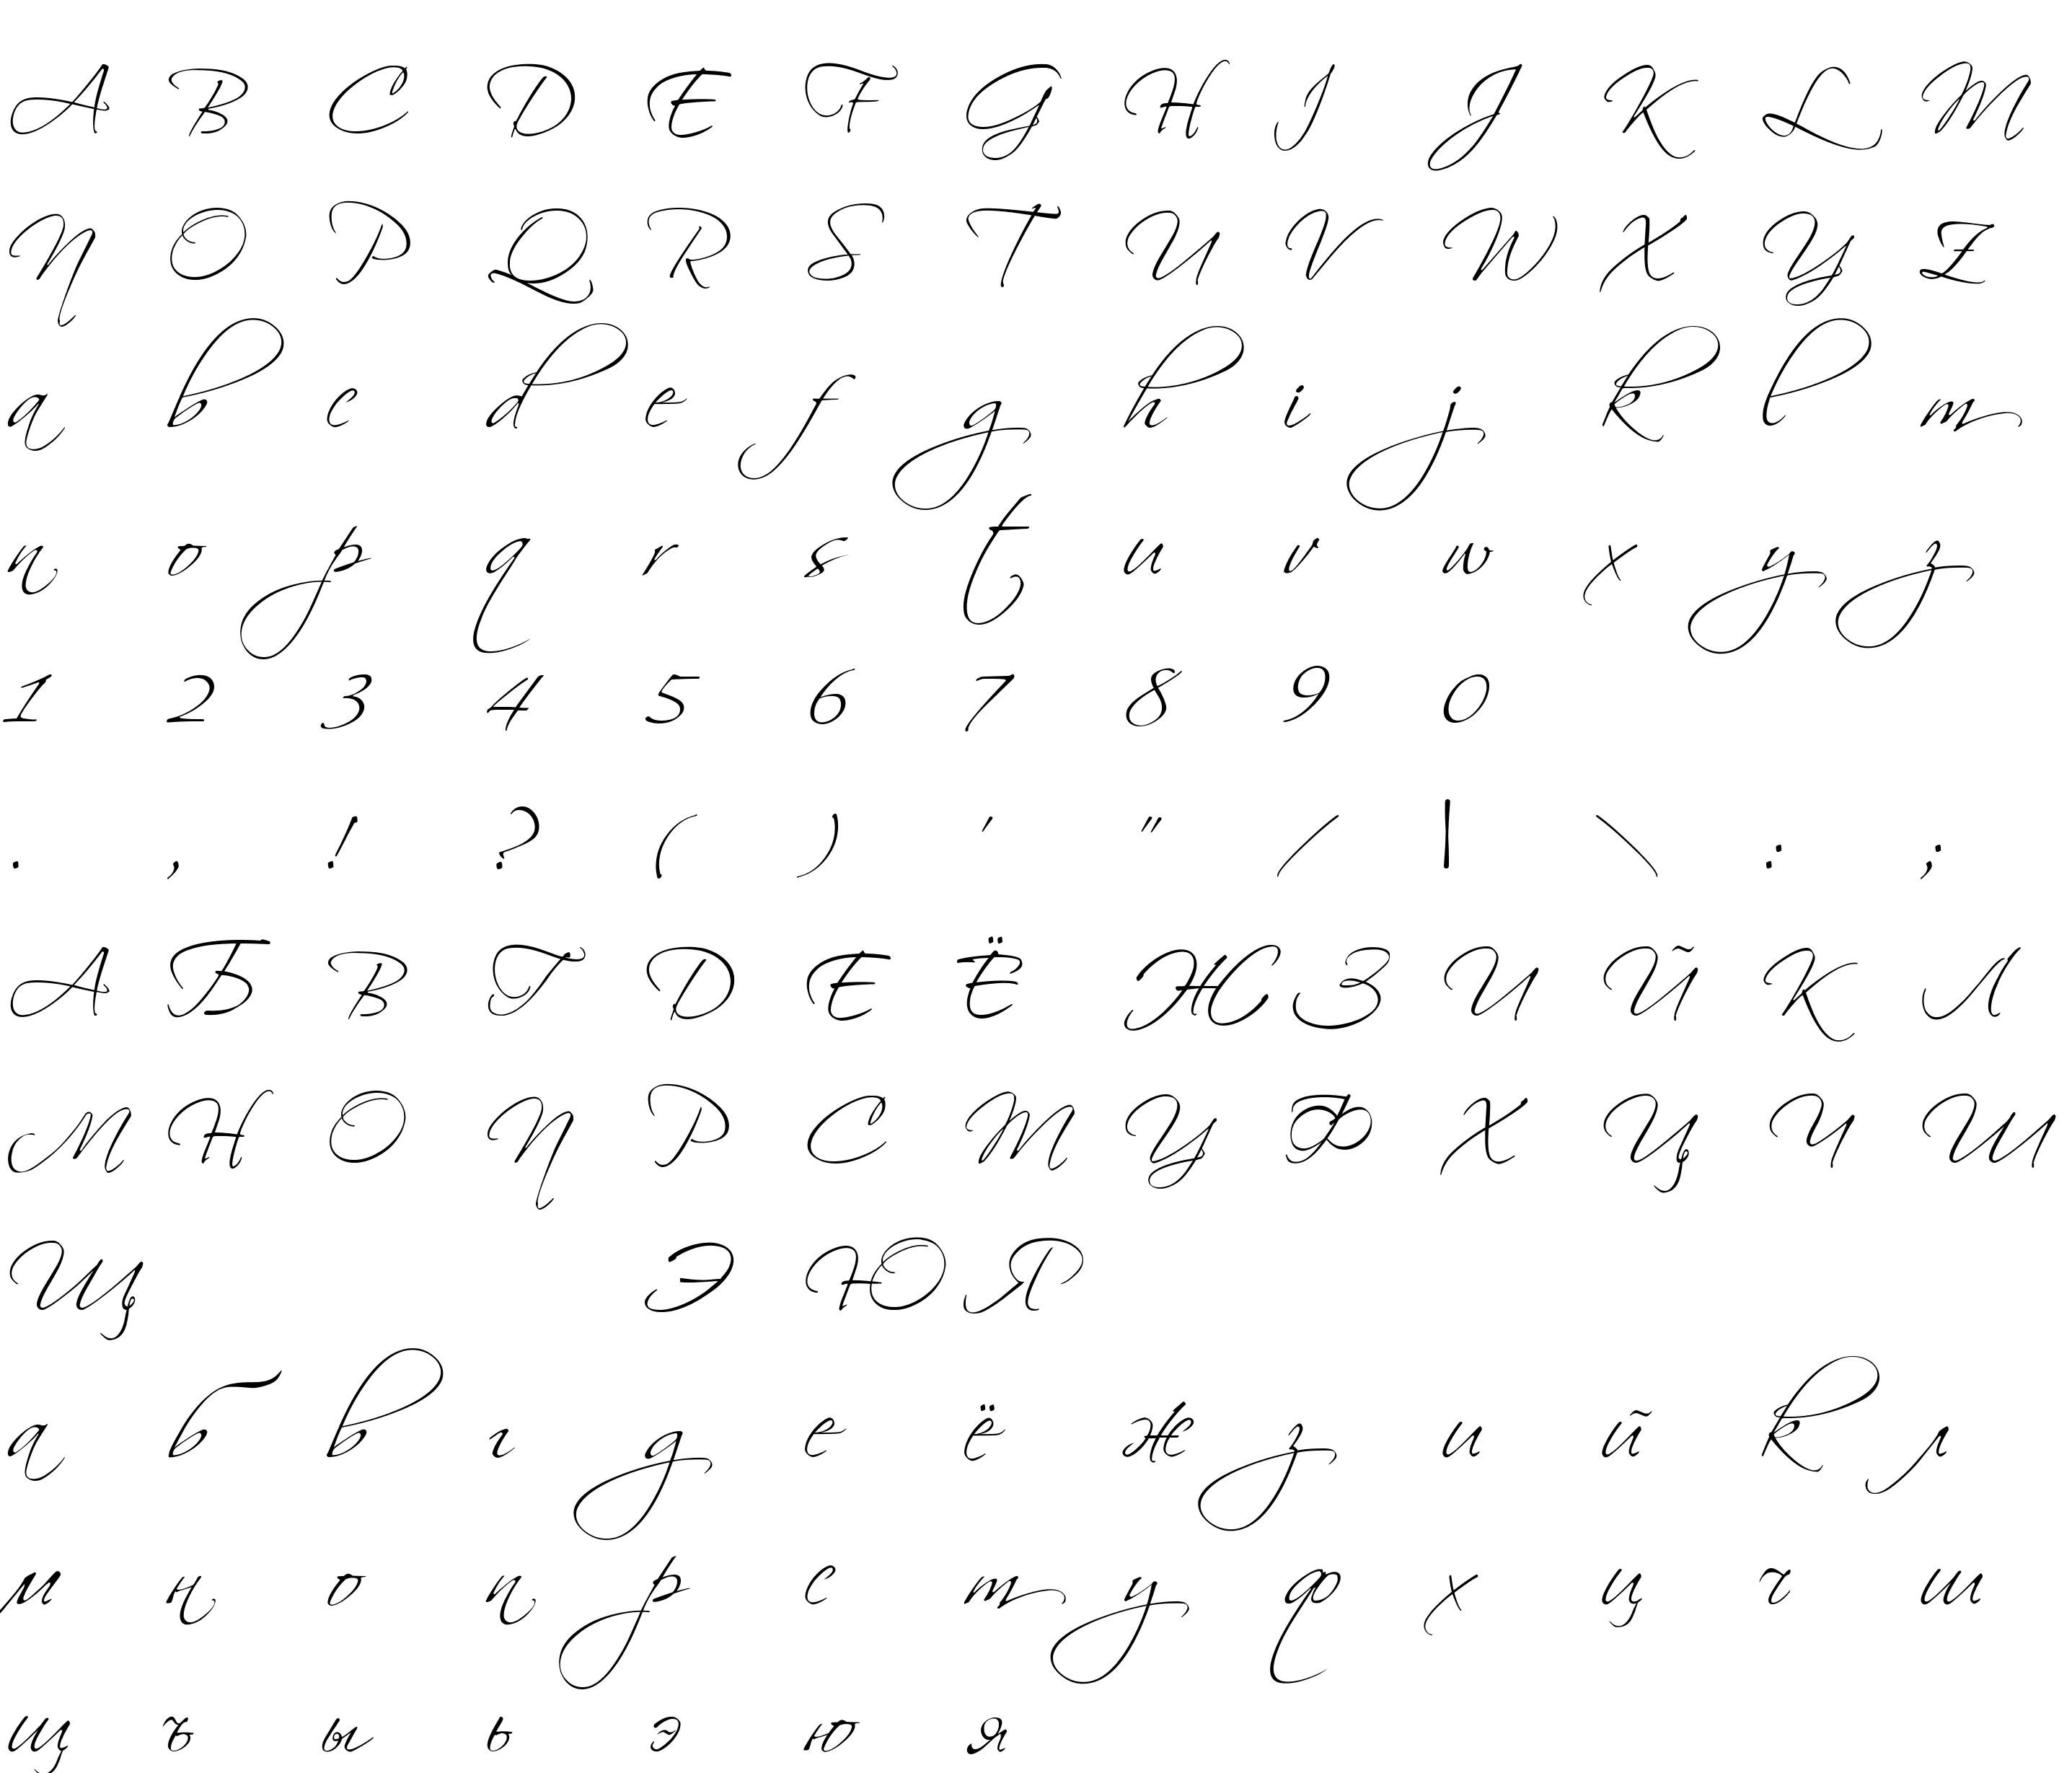 A B C D E F G H I J K L M
N O P Q R S T U V W X Y Z
a b c d e f g h i j k l m
n o p q r s t u v w x y z
1 2 3 4 5 6 7 8 9 0
. , ! ? ( ) ' " / | \ : ;
А Б В Г Д Е Ё Ж З И Й К Л
М Н О П Р С Т У Ф Х Ц Ч Ш
Щ Э Ю Я
а б в г д е ё ж з и й к л
м н о п р с т у ф х ц ч ш
щ ъ ы ь э ю я